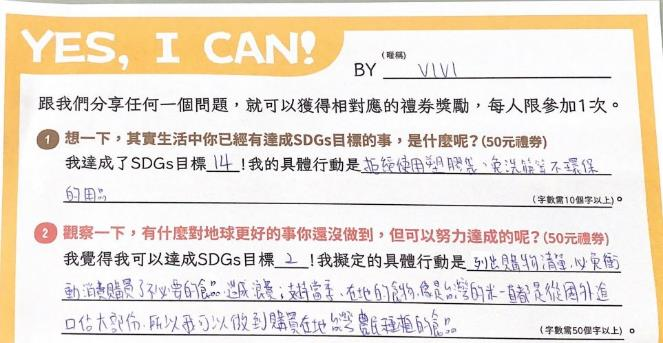 YES, I CAN!
(暱稱)
BY VIVI
跟我們分享任何一個問題，就可以獲得相對應的禮券獎勵，每人限參加1次。
1 想一下，其實生活中你已經有達成SDGs目標的事，是什麼呢？(50元禮券)
我達成了SDGs目標 14 ！我的具體行動是 拒絕使用塑膠袋、免洗筷等不環保
的用品 (字數需10個字以上)。
2 觀察一下，有什麼對地球更好的事你還沒做到，但可以努力達成的呢？(50元禮券)
我覺得我可以達成SDGs目標 2 ！我擬定的具體行動是 列出購物清單，以免衝
動消費購買了不必要的食品，造成浪費；支持當季、在地的食物，像是台灣的米一直都是從國外進
口佔大部份，所以我可以做到購買在地台灣農民種植的食品 (字數需50個字以上)。